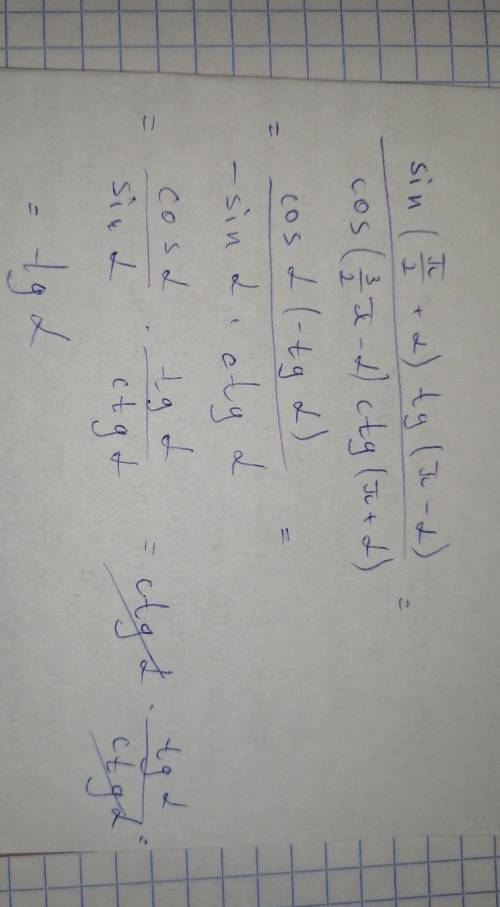 sin(π/2 + α) tg(π - α)
cos(3/2 π - α) ctg(π + α) =
= cos α (-tg α)
-sin α · ctg α =
= cos α / sin α · tg α / ctg α = ctg α · tg α / ctg α =
= tg α